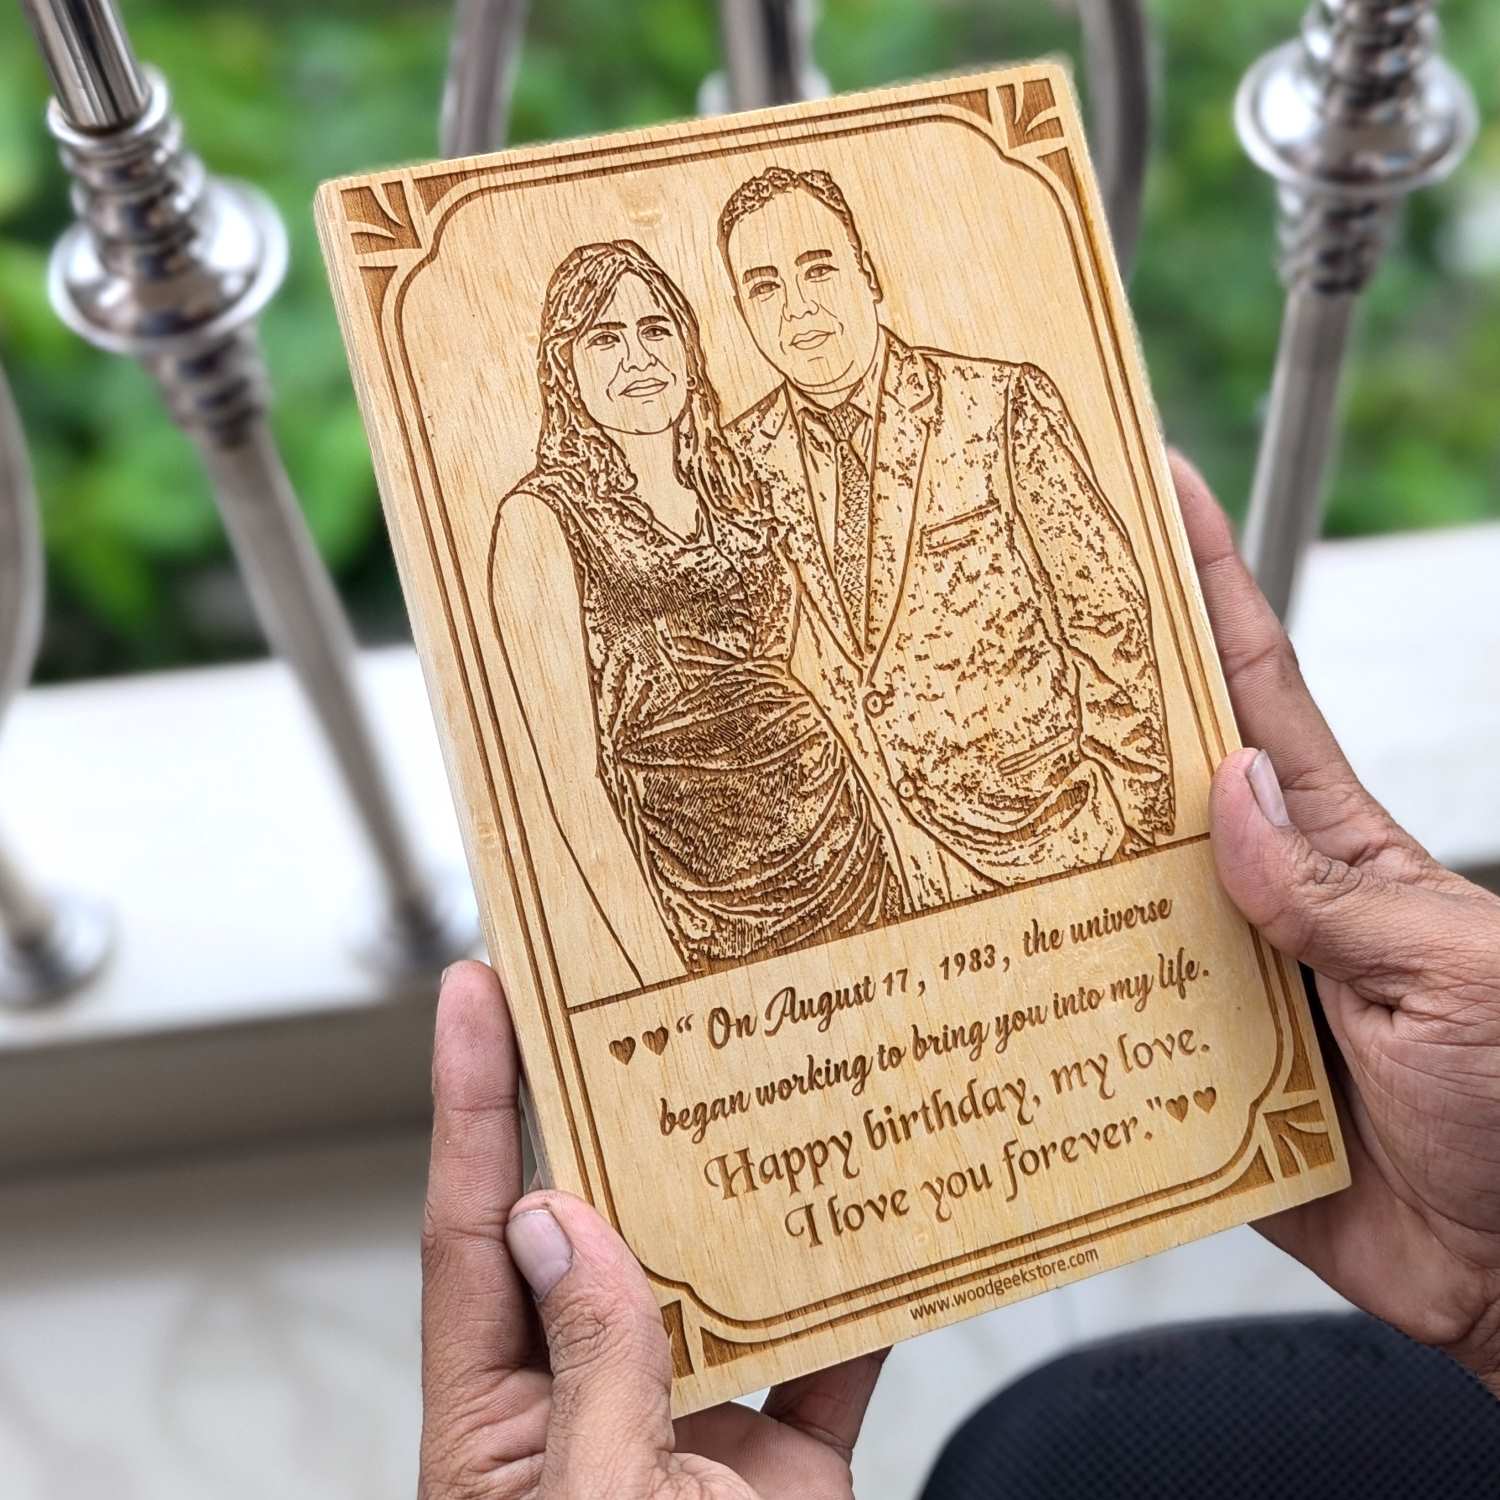 ♥♥“ On August 17, 1983, the universe
began working to bring you into my life.
Happy birthday, my love.
I love you forever."♥♥
www.woodgeekstore.com